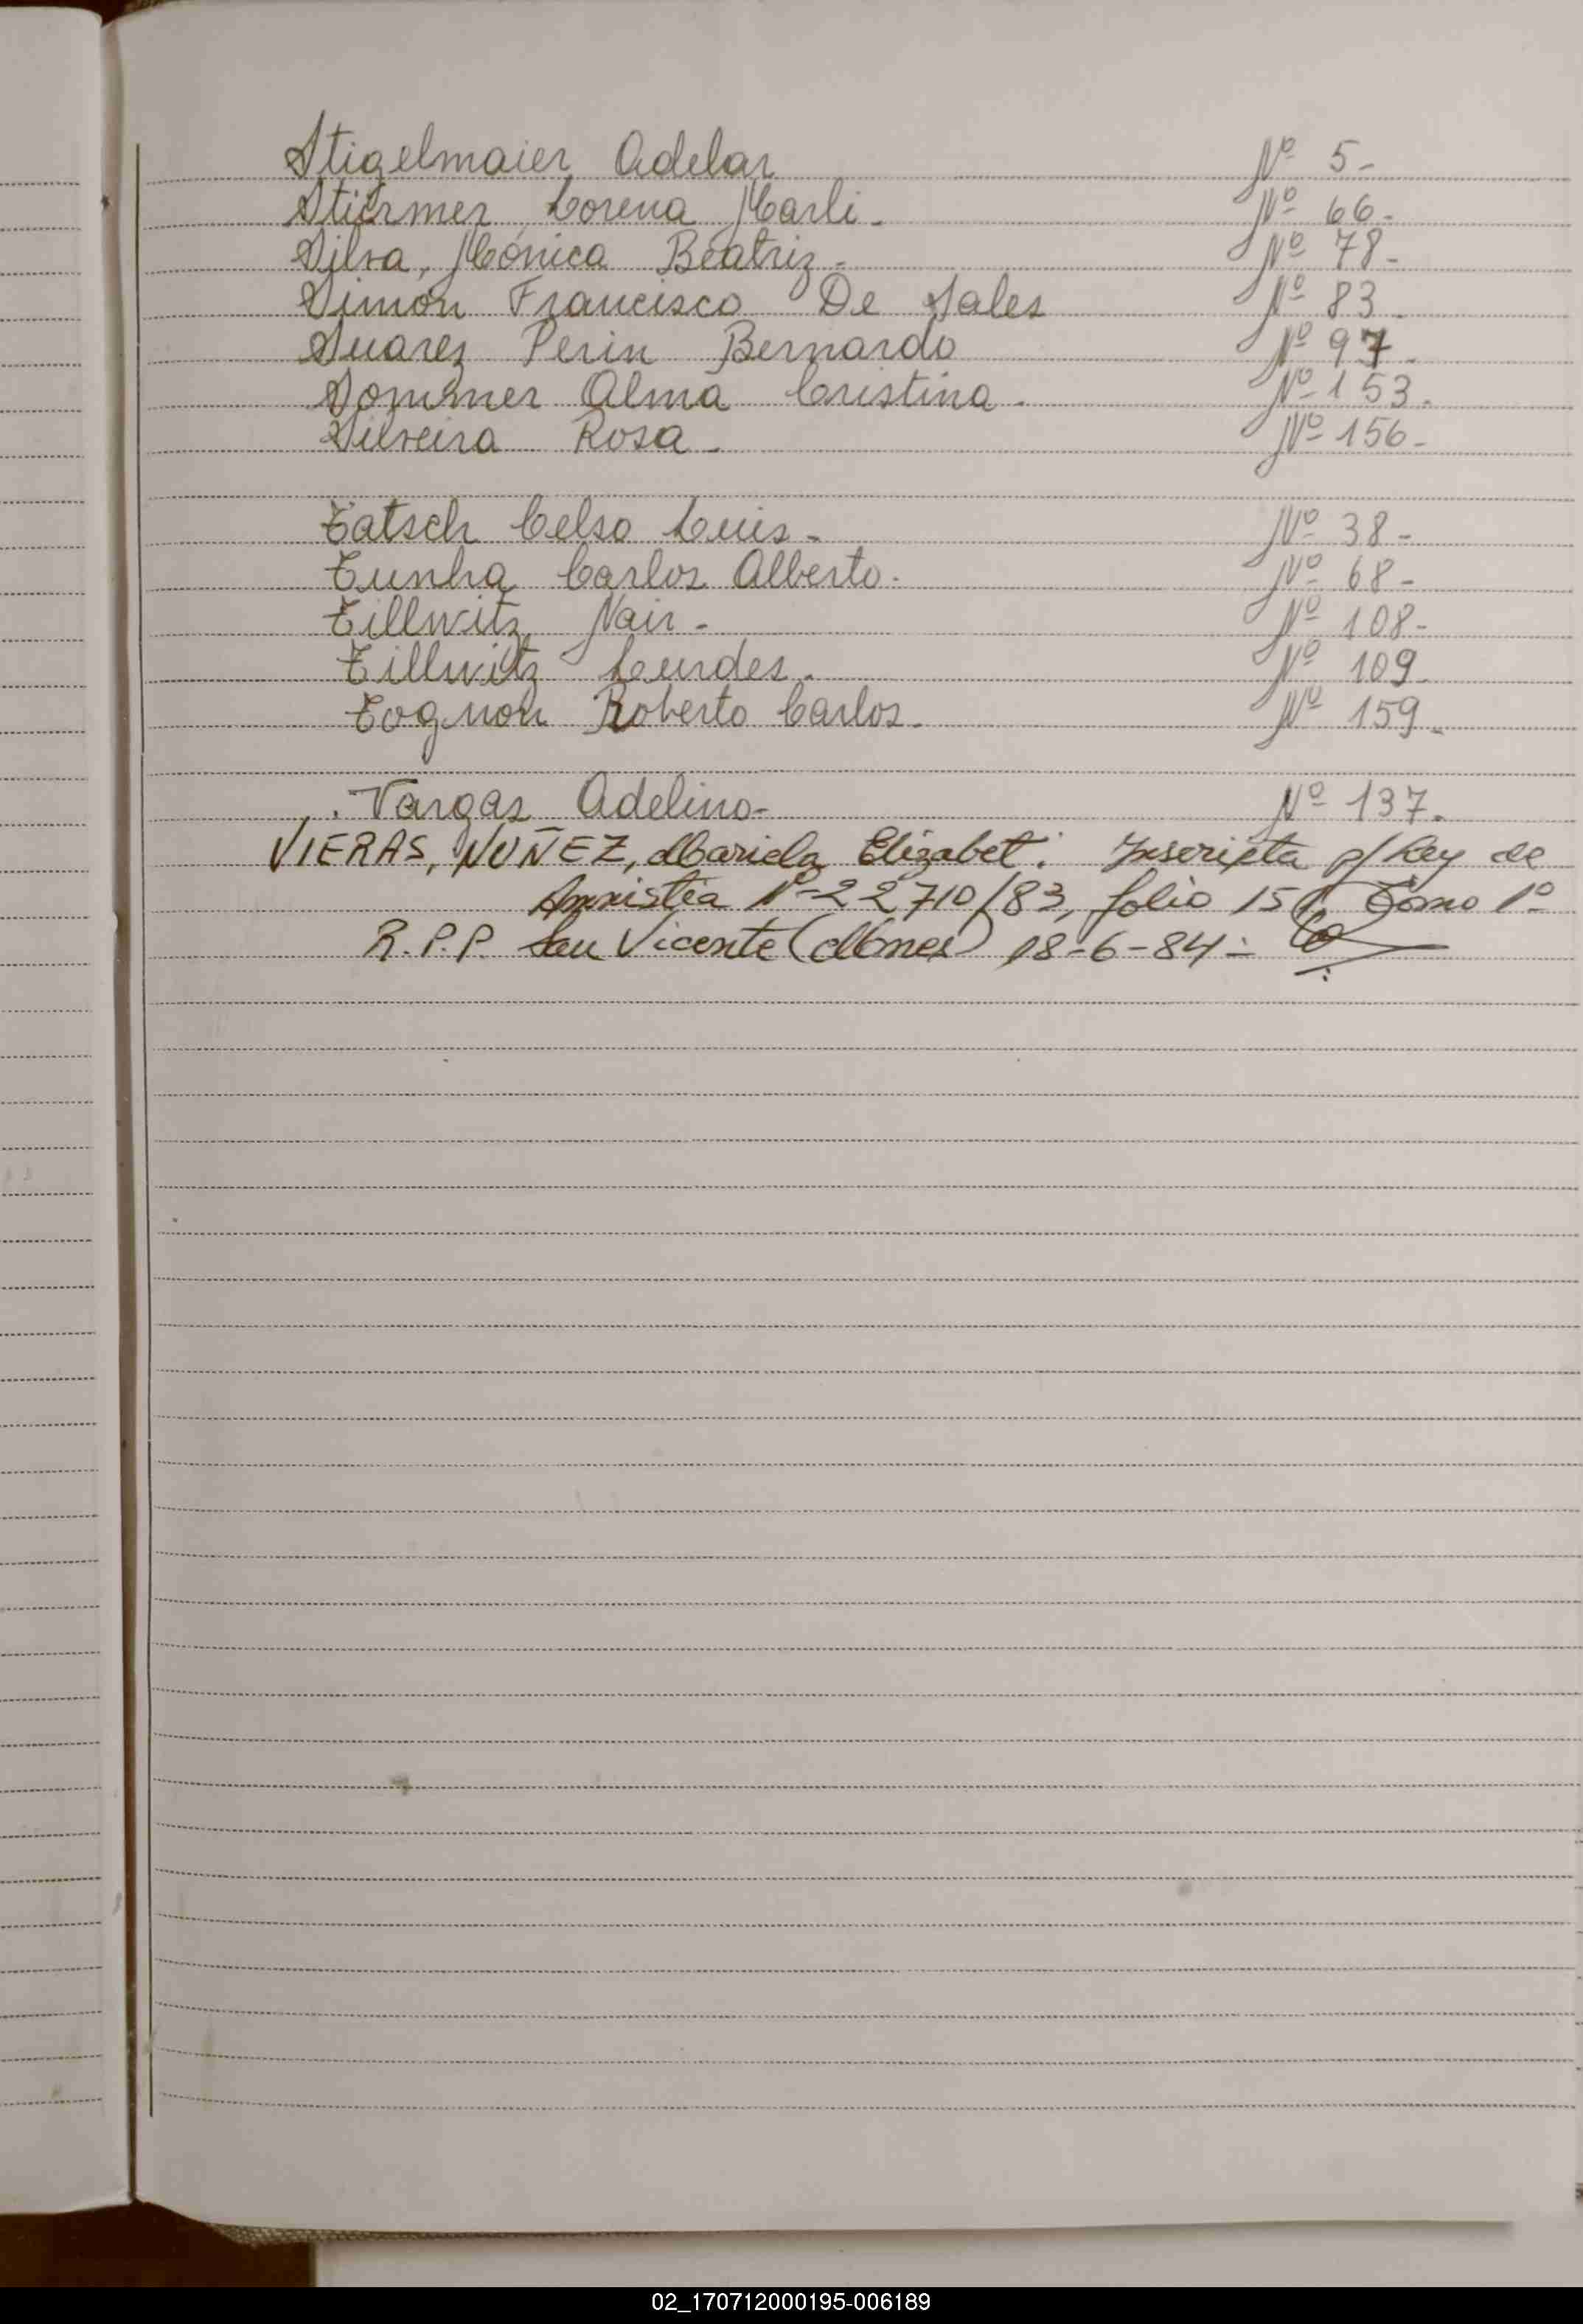 Stigelmaier Adelar Nº 5-
Stiermer, Lorena Marli- Nº 66-
Silva, Mónica Beatriz- Nº 78-
Simon Francisco De Sales Nº 83-
Suarez Perin Bernardo Nº 97-
Sommer Alma Cristina- Nº 153-
Silveira Rosa- Nº 156-
Tatsch Celso Luis- Nº 38-
Tunha Carlos Alberto- Nº 68-
Tillwitz, Nair- Nº 108-
Tillwitz Lurdes- Nº 109-
Tognon Roberto Carlos- Nº 159-
Vargas Adelino- Nº 137-
VIERAS, NUÑEZ, Mariela Elizabet: Inscripta p/ Ley de
Amnistia Nº 22710/83, folio 151, Tomo 1º
R.P.P. San Vicente (Mnes) 18-6-84-
02_170712000195-006189